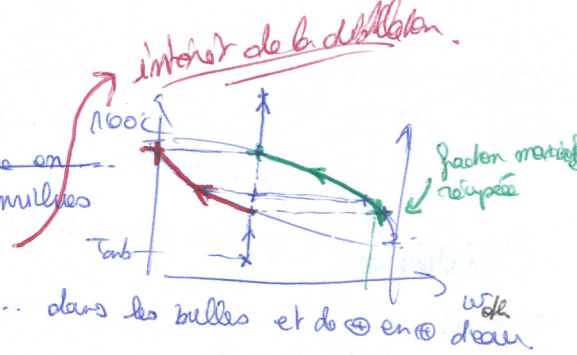 intérêt de la distillation.
100°C
e en
fraction massique
récupérée
Tamb
... dans les bulles et de ⊕ en ⊕ d'eau.